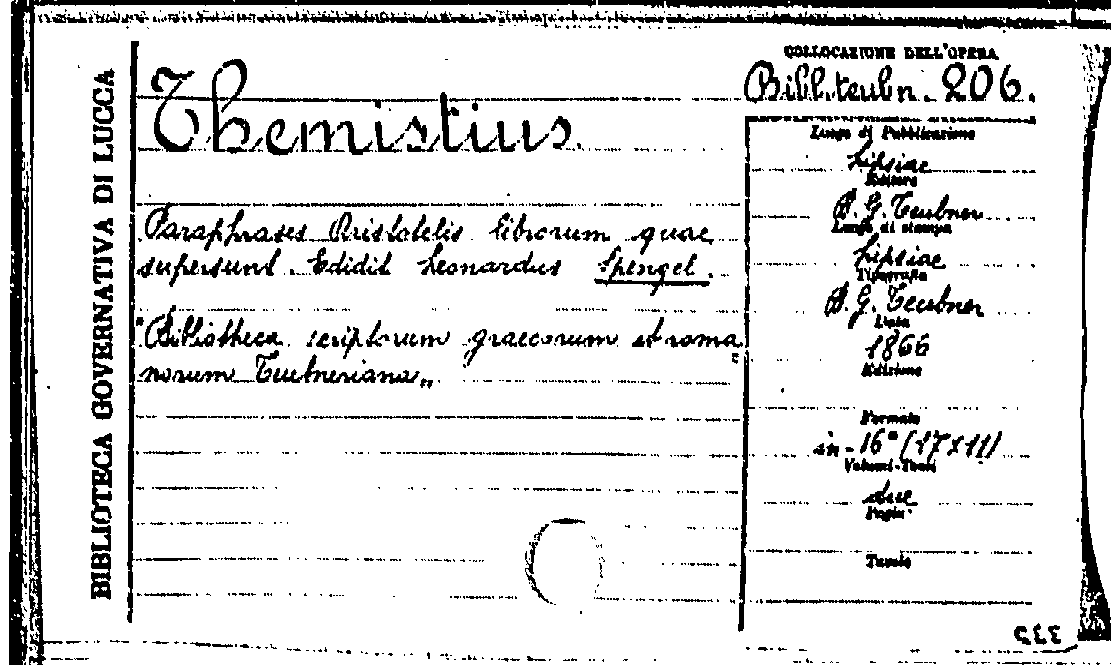 BIBLIOTECA GOVERNATIVA DI LUCCA
Themistius.
Paraphrases Aristotelis librorum quae
supersunt. Edidit Leonardus Spengel.
"Bibliotheca scriptorum graecorum et roma
norum Teubneriana„
COLLOCAZIONE DELL'OPERA
Bibl. teubn. 206.
Luogo di Pubblicazione
Lipsiae
Editore
B. G. Teubner
Luogo di stampa
Lipsiae
Tipografia
B. G. Teubner
Data
1866
Edizione
Formato
in-16° (17x11)
Volumi-Tomi
due
Pagin
Tavole